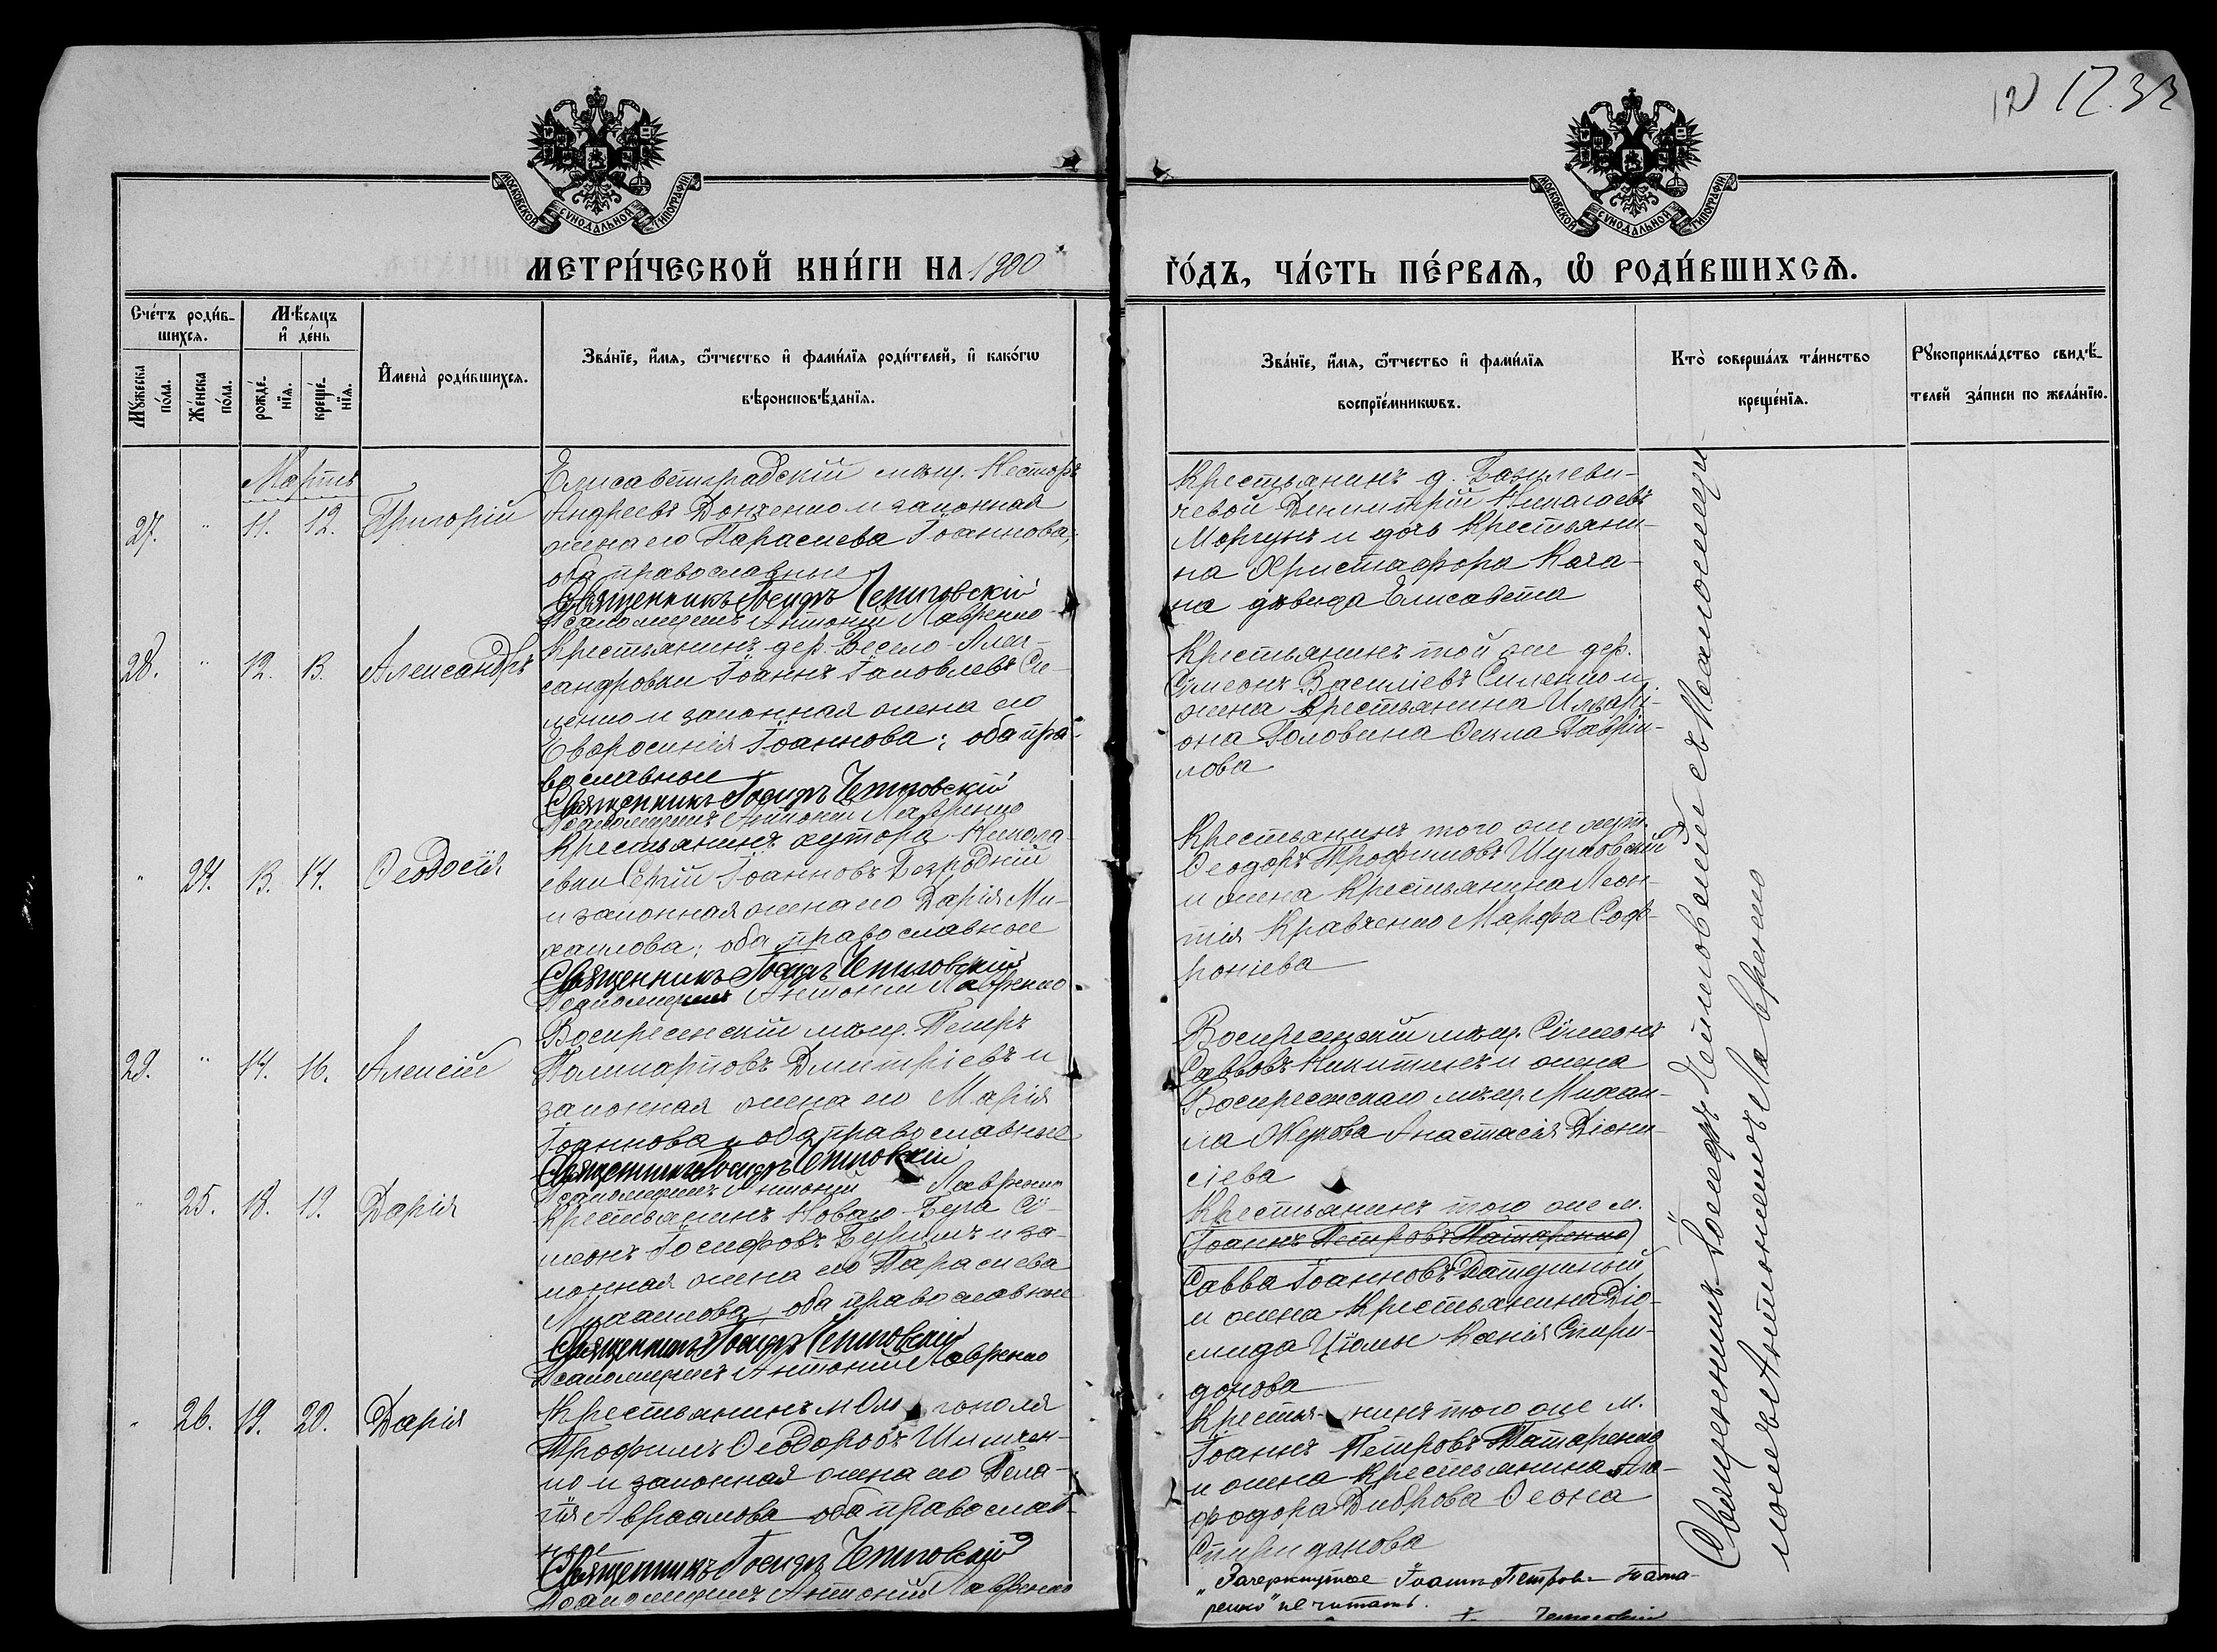 12) 17. 33
МОСКОВСКОЙ СѴНОДАЛЬНОЙ ТИПОГРАФІИ
МОСКОВСКОЙ СѴНОДАЛЬНОЙ ТИПОГРАФІИ
МЕТРИ́ЧЕСКОЙ КНИ́ГИ НА 1900
ГО́ДЪ, ЧА́СТЬ ПЕ́РВАѦ, Ѡ РОДИ́ВШИХСѦ.
Сче́тъ роди́в-
шихсѧ.
Мѣ́сѧцъ
и҆ де́нь
Мꙋ́жеска
по́ла.
Же́нска
по́ла.
рожде́-
нїѧ.
креще́-
нїѧ.
И҆мена̀ роди́вшихсѧ.
Зва́нїе, и҆́мѧ, ѻ҆́тчество и҆ фами́лїѧ роди́телей, и҆ како́гѡ
вѣроисповѣ́данїѧ.
Зва́нїе, и҆́мѧ, ѻ҆́тчество и҆ фами́лїѧ
воспрїе́мникѡвъ.
Кто̀ соверша́лъ та́инство
креще́нїѧ.
Рꙋкоприкла́дство свидѣ́-
телей за́писи по жела́нїю.
Мартъ
27. " 11. 12. Григорій
Елисаветградскій мѣщ. Несторъ
Андреевъ Донченко и законная
жена его Параскева Іоаннова,
оба православные
Священникъ Іосифъ Чепиговскій
Псаломщикъ Антоній Лавренко
Крестьянинъ д. Базилеви-
чевой Димитрій Николаевъ
Моргунъ и дочь крестьяни-
на Христофора Кача-
на дѣвица Елисавета
28. " 12. 13. Александръ
Крестьянинъ дер. Весело-Алек-
сандровки Іоаннъ Іаковлевъ Си-
ленко и законная жена его
Евфросинія Іоаннова; оба пра-
вославные
Священникъ Іосифъ Чепиговскій
Псаломщикъ Антоній Лавренко
Крестьянинъ той же дер.
Сѵмеонъ Василіевъ Силенко и
жена крестьянина Иларі-
она Головина Ѳекла Гаврии-
лова
" 24. 13. 14. Ѳеодосія
Крестьянинъ хутора Никола-
евки Сергій Іоанновъ Безродній
и законная жена его Дарія Ми-
хаилова; оба православные
Священникъ Іосифъ Чепиговскій
Псаломщикъ Антоній Лавренко
Крестьянинъ того же хут.
Ѳеодоръ Трофимовъ Шумовскій
и жена крестьянина Леон-
тія Кравченко Марфа Соф-
роніева
29. " 14. 16. Алексій
Воскресенскій мѣщ. Петръ
Поликарповъ Дмитріевъ и
законная жена его Марія
Іоаннова, оба православные
Священникъ Іосифъ Чепиговскій
Псаломщикъ Антоній Лавренко
Воскресенскій мѣщ. Сѵмеонъ
Савовъ Никитинъ и жена
Воскресенскаго мѣщ. Михаи-
ла Анастасія Діони-
сіева
" 25. 18. 19. Дарія
Крестьянинъ Новаго-Буга Сѵ-
меонъ Іосифовъ и за-
конная жена его Параскева
Михаилова, оба православные
Священникъ Іосифъ Чепиговскій
Псаломщикъ Антоній Лавренко
Крестьянинъ того же м.
(Іоаннъ Петровъ Татаренко)
Савва Іоанновъ
и жена крестьянина Діо-
мида Ксенія Спири-
донова
" 26. 19. 20. Дарія
Крестьянинъ м. гополя
Трофимъ Ѳеодоровъ Шимчен-
ко и законная жена его Пела-
гія Авраамова оба православ-
ные
Священникъ Іосифъ Чепиговскій
Псаломщикъ Антоній Лавренко
Крестьянинъ того же м.
Іоаннъ Петровъ Татаренко
и жена крестьянина Ага-
фодора Диброва Ѳеона
Спиридонова
"Зачеркнутое Іоаннъ Петровъ Тата-
ренко" не читать.
Чепиговскій
Священникъ Іосифъ Чепиговскій съ псаломщи-
комъ Антоніемъ Лавренко